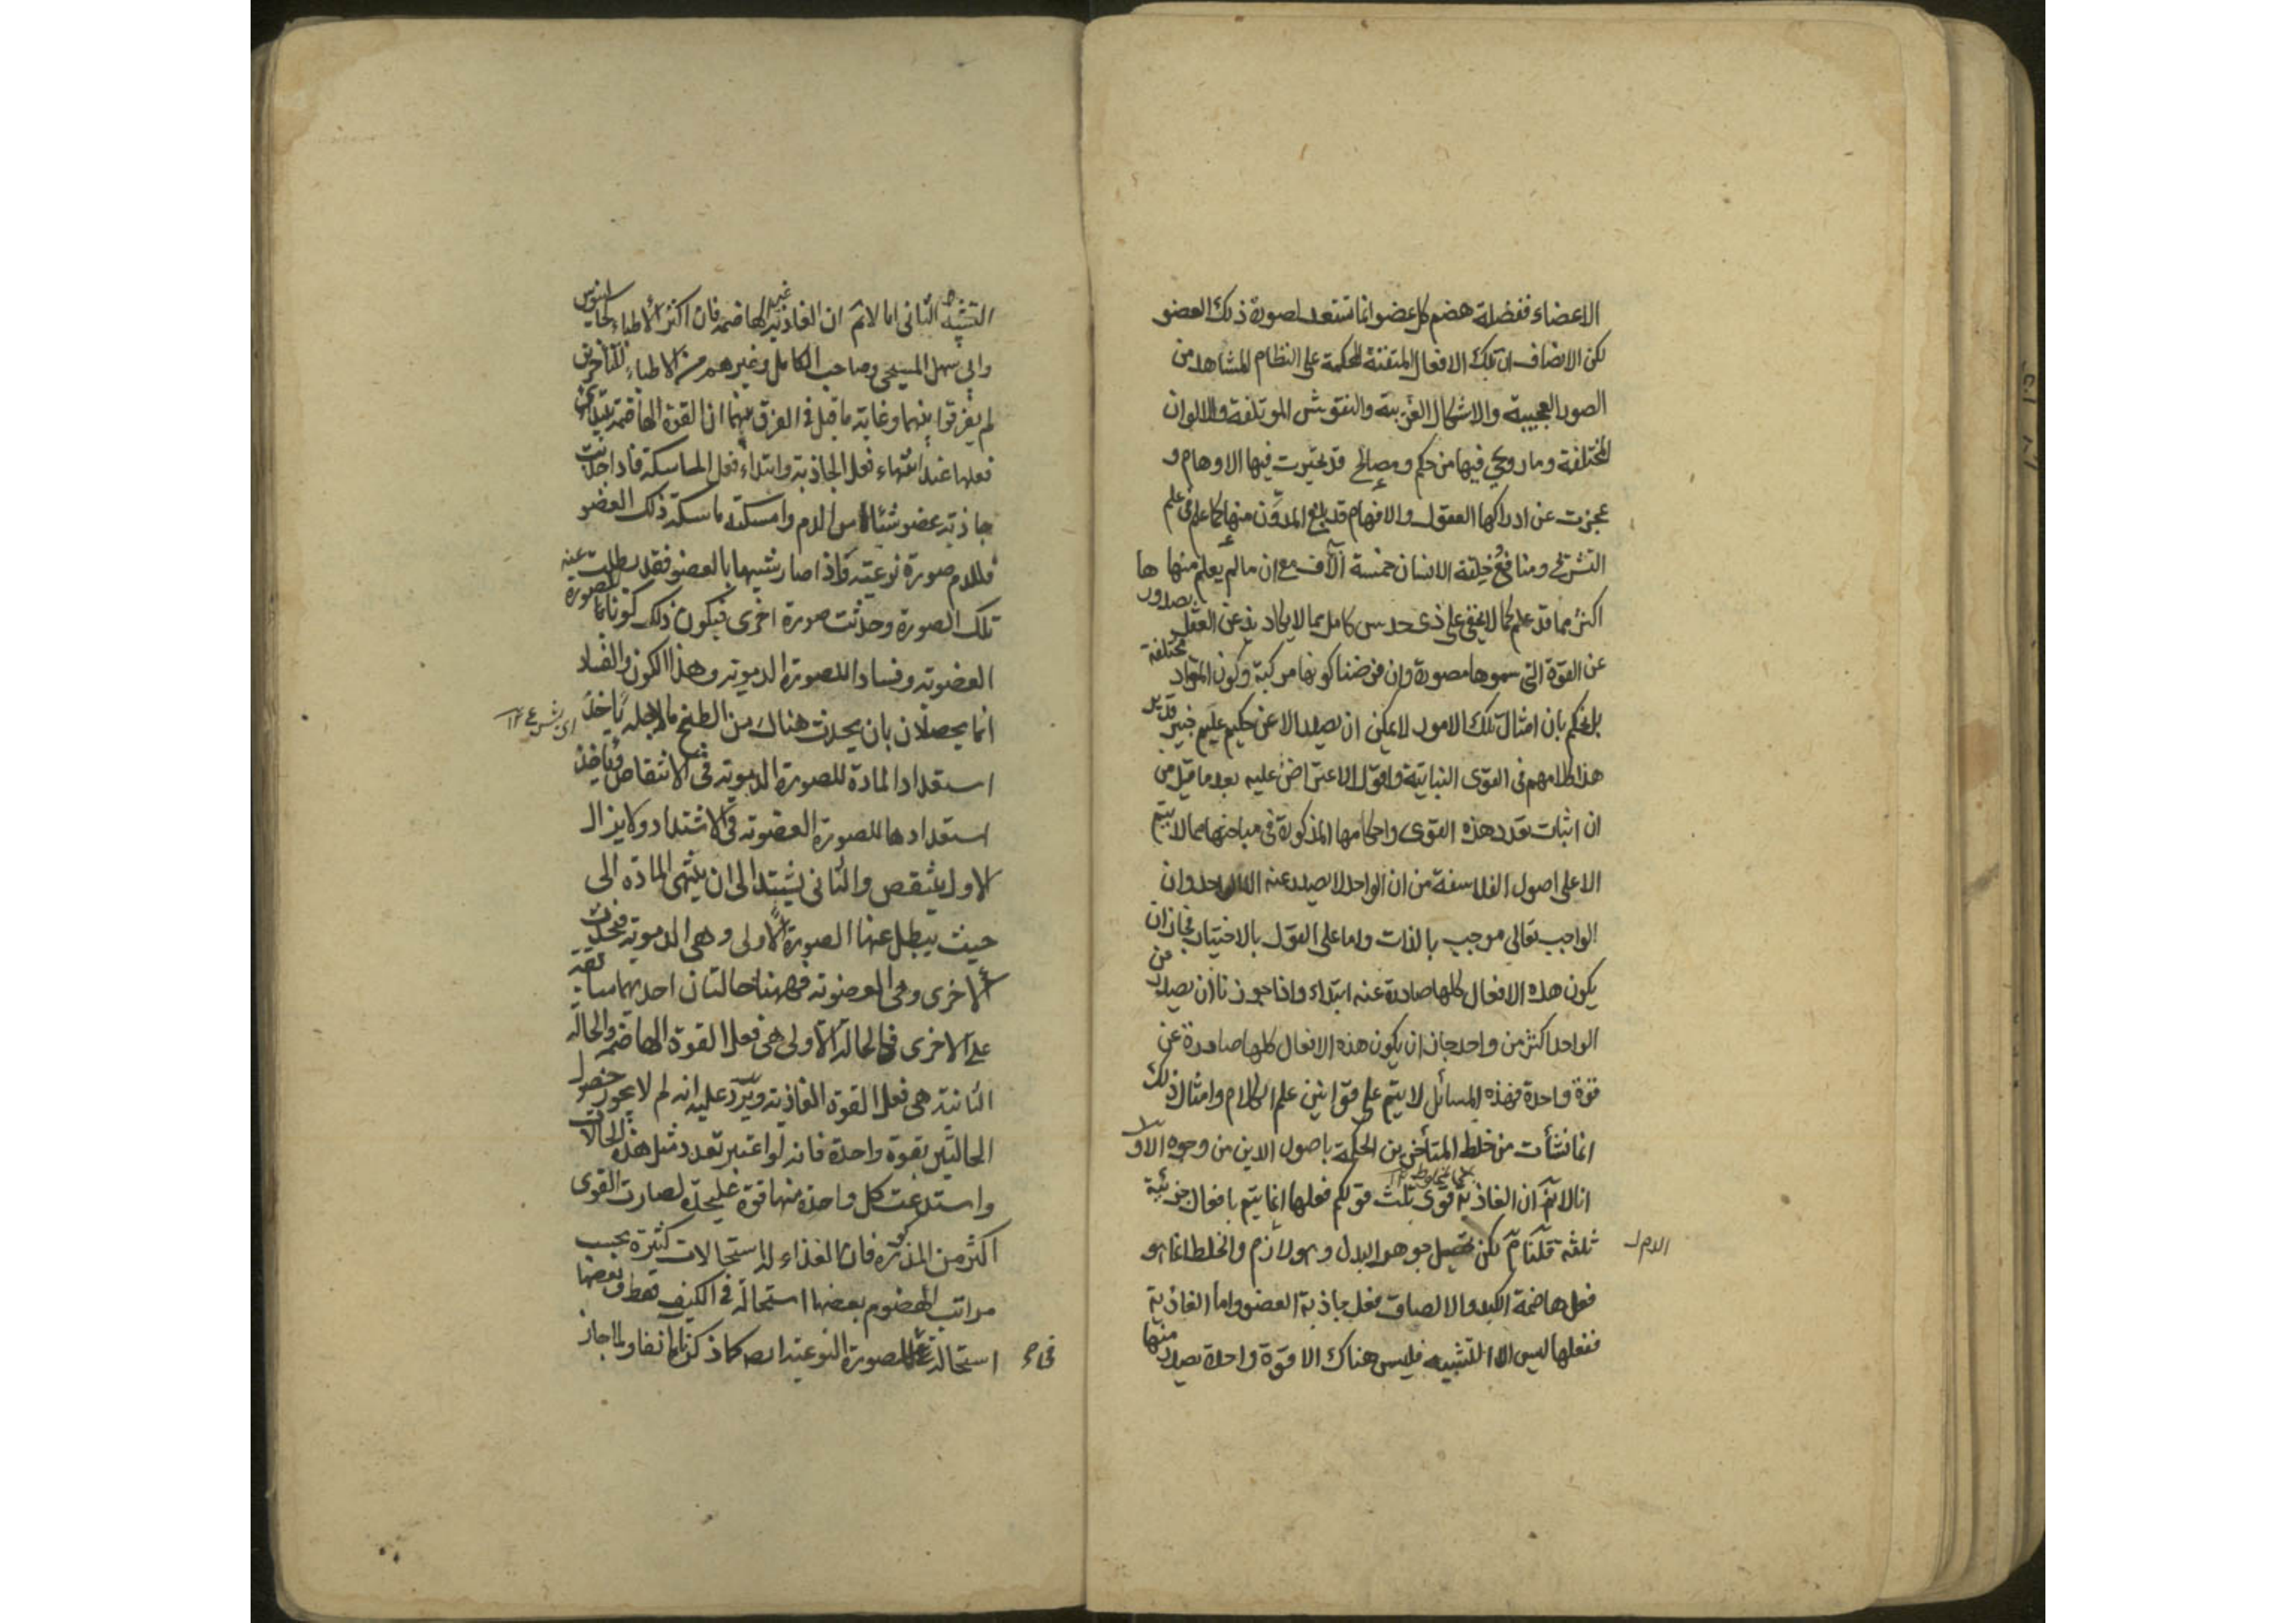 الاعضاء ففضلة هضم كل عضو انما تستعد لصورة ذلك العضو
لكن الانصاف ان تلك الافعال المتقنة المحكمة على النظام المشاهد من
الصور العجيبة والاشكال الغريبة والنقوش الموتلفة والالوان
المختلفة وما روعي فيها من حكم ومصالح قد تحيرت فيها الاوهام و
عجزت عن ادراكها العقول والافهام قد بلغ المدون منها كما علم فى علم
التشريح ومنافع خلقة الانسان خمسة آلاف مع ان ما لم يعلم منها
اكثر مما قد علم كما لا يخفى على ذى حدس كامل مما لا يكاد يذعن العقل بصدورها
عن القوة التى سموها مصورة وان فرضنا كونها مركبة وكون المواد مختلفة
بل نحكم بان امثال تلك الامور لا يمكن ان يصدر الا عن حكيم عليم خبير قدير
هذا كلامهم فى القوى النباتية واقول الاعتراض عليه بعد ما قيل من
ان اثبات تعدد هذه القوى واحكامها المذكورة فى مباحثها مما لا يتم
الا على اصول الفلاسفة من ان الواحد لا يصدر عنه الا الواحد وان
الواجب تعالى موجب بالذات واما على القول بالاختيار فجاز ان
يكون هذه الافعال كلها صادرة عنه ابتداء واذا جوزنا ان يصدر من
الواحد اكثر من واحد جاز ان يكون هذه الافعال كلها صادرة عن
قوة واحدة فهذه المسائل لا يتم على قوانين علم الكلام وامثال ذلك
انما نشأت من خلط المتأخرين الحكمة باصول الدين من وجوه الاول
انا لا نم ان الغاذية قوى ثلث قولكم فعلها انما يتم بافعال جزئية
ثلثة قلنا م لكن تحصيل جوهر البدل وهو الدم والخلط انما هو
فعل هاضمة الكبد والالصاق فعل جاذبة العضو واما الغاذية
ففعلها ليس الا التشبيه فليس هناك الا قوة واحدة يصدر منها
التشبيه الثانى انا لا نم ان الغاذية غير الهاضمة فان اكثر الاطباء كجالينوس
وابى سهل المسيحى وصاحب الكامل وغيرهم من الاطباء المتأخرين
لم يفرقوا بينهما وغاية ما قيل فى الفرق بينهما ان القوة الهاضمة يبتدئ
فعلها عند انتهاء فعل الجاذبة وابتداء فعل الماسكة فاذا جذبت
جاذبة عضو شيئا من الدم وامسكته ماسكة ذلك العضو
فللدم صورة نوعية واذا صار شبيها بالعضو فقد بطلت عنه
تلك الصورة وحدثت صورة اخرى فيكون ذلك كونا للصورة
العضوية وفسادا للصورة الدموية وهذا الكون والفساد
انما يحصلان بان يحدث هناك من الطبخ ما لاجله يأخذ
اى يشرع ١٢
استعداد المادة للصورة الدموية فى الانتقاص ويأخذ
استعدادها للصورة العضوية فى الاشتداد ولا يزال
الاول ينتقص والثانى يشتد الى ان ينتهى المادة الى
حيث يبطل عنها الصورة الاولى وهى الدموية فتحدث
الاخرى وهى العضوية فههنا حالتان احدهما سابقة
على الاخرى فالحالة الاولى هى فعل القوة الهاضمة والحالة
الثانية هى فعل القوة الغاذية ويرد عليه انه لم لا يجوز حصول
الحالتين بقوة واحدة فانه لو اعتبر تعدد مثل هذه الحالات
واستدعت كل واحدة منها قوة عليحدة لصارت القوى
اكثر من المذكورة فان الغذاء له استحالات كثيرة بحسب
مراتب الهضوم بعضها استحالة فى الكيف فقط وبعضها
استحالة فى الصورة النوعية ايضا كما ذكرنا آنفا ولما جاز